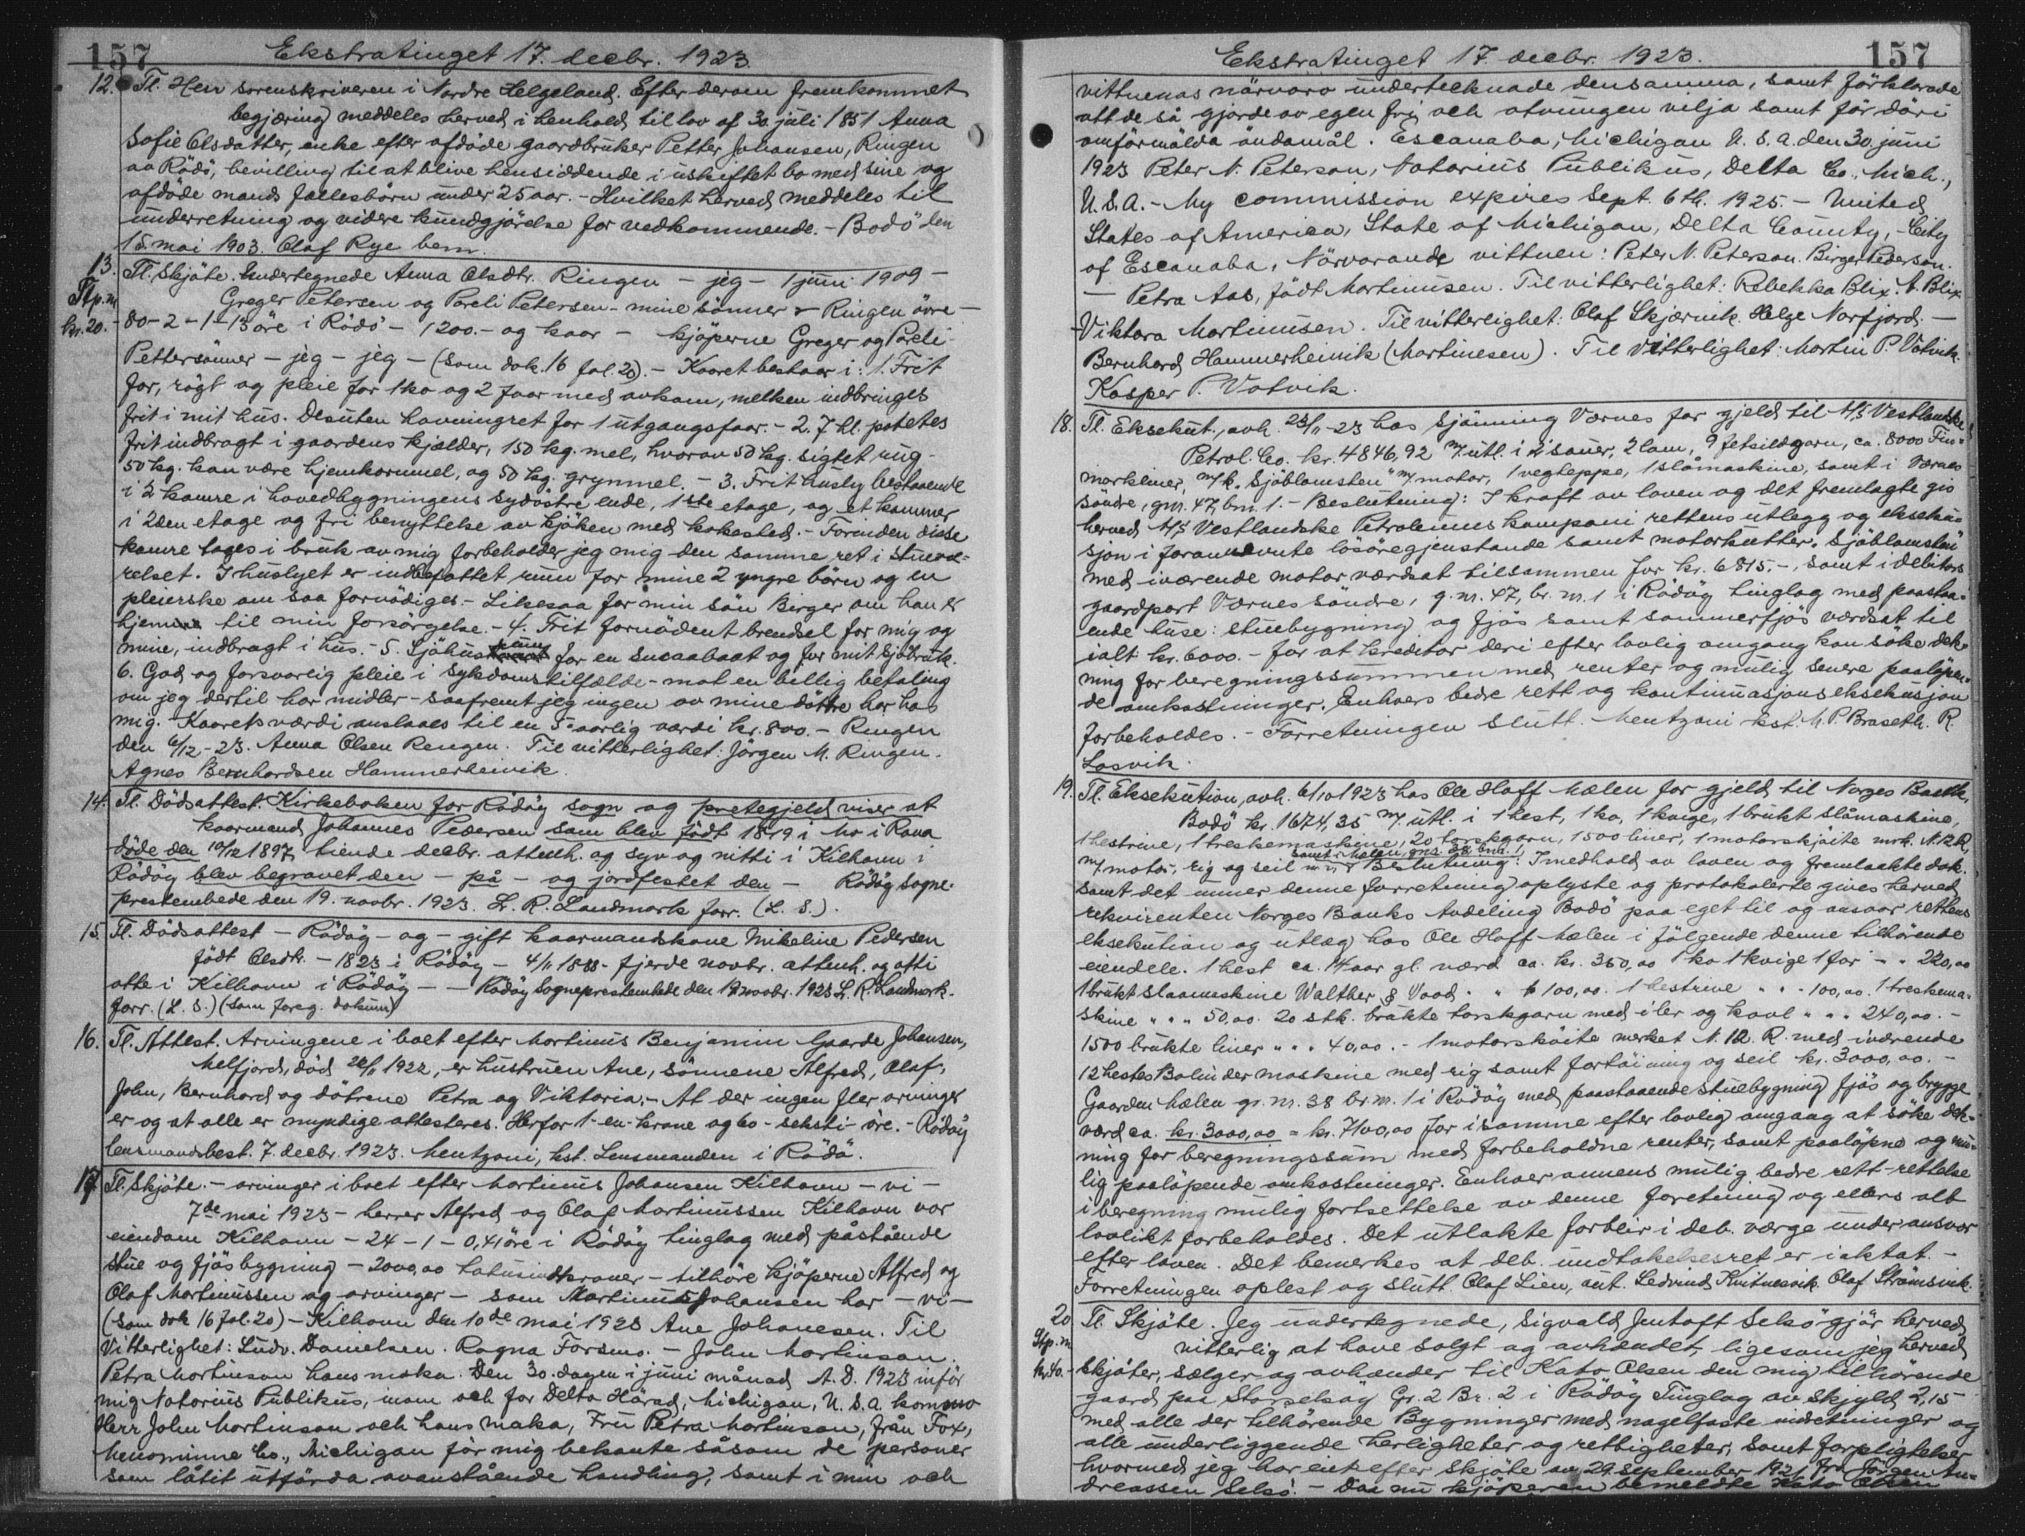 157
Ekstratinget 17. decbr. 1923.
12. Tl. Herr sorenskriveren i Nordre Helgeland. Efter derom fremkommet
begjæring meddeles herved i henhold til lov af 30. juli 1851 Anna
Sofie Olsdatter, enke efter afdöde gaardbruker Petter Johansen, Ringen
av Rödö, bevilling til at blive hensiddende i uskiftet bo med sine og
afdöde mands fællesbörn under 25 aar. - Hvilket herved meddeles til
underretning og videre kundgjörelse for vedkommende. - Bodö den
15 mai 1903. Olaf Rye bem.
13. Tl. Skjöte. Undertegnede Anna Olsdtr. Ringen - jeg - 1 juni 1909 -
Stp. m. Greger Petersen og Poreli Petersen - mine sönner - Ringen övre -
kr. 20. - 80 - 2 - 1 - 13 öre i Rödö - 1200. - og kaar - kjöperne Greger og Poreli
Pettersönner - jeg - jeg - (som dok. 16 fol. 20). - Kaaret bestaar i: 1. Frit
for, rögt og pleie for 1 ko og 2 faar med avkom, melken indbringes
frit i mit hus. Desuten havningret for 1 utgangsfaar. - 2. 7 hl. potetes
frit indbragt i gaardens kjælder, 150 kg. mel, hvorav 50 kg. sigtet rug -
50 kg. kan være hjemkornmel, og 50 kg. grynmel. - 3. Frit husly bestaaende
i 2 kamre i hovedbygningens sydöstre ende, 1ste etage, og et kammer
i 2den etage og fri benyttelse av kjöken med kokested. - Forinden disse
kamre tages i bruk av mig forbeholder jeg mig den samme ret i stuevæ-
relset. I huslyet er indbefattet rum for mine 2 yngre börn og en
pleierske om saa fornödiges. - Likesaa for min sön Birger om han er
hjemme til min forsörgelse. - 4. Frit fornödent brendsel for mig og
mine, indbragt i hus. - 5. Sjöhusrum for en smaabaat og for mit sjöbruk.
6. God og forsvarlig pleie i sykdomstilfælde - mot en billig betaling
om jeg dertil har midler - saafremt jeg ingen av mine döttre har hos
mig. Kaarets værdi anslaaes til en 5-aarlig værdi kr. 800. - Ringen
den 6/12 - 23. Anna Olsen Rengen. Til vitterlighet: Jörgen M. Ringen.
Agnes Bernhardsen Hammerheimvik.
14. Tl. Dödsattest. Kirkeboken for Rödöy sogn og prestegjeld viser at
kaarmand Johannes Pedersen som blev födt 1819 i Mo i Rana
döde den 10/12 1897, tiende decbr. attenh. og syv og nitti i Kilhavn i
Rödöy blev begravet den - på - og jordfestet den - Rödöy sogne-
prestembede den 19. novbr. 1923. L. R. Landmark forr. (L. S.).
15. Tl. Dödsattest - Rödöy - og - gift kaarmandskone Mikeline Pedersen
födt Olsdtr. - 1823 i Rödöy - 4/11 1888 - fjerde novbr. attenh. og otti
otte i Kilhavn i Rödöy - - Rödöy sogneprestembede den 19 novbr. 1923 L. R. Landmark.
forr. (L. S.) (som foreg. dokum)
16. Tl. Attest. Arvingene i boet efter Martinus Benjamin Gaarde Johansen,
Melfjord, död 26/11 1922, er hustruen Ane, sönnene Alfred, Olaf,
John, Bernhard og dötrene Petra og Viktoria. - At der ingen fler arvinger
er og at alle er myndige attesteres. Herfor 1 - en - krone og 60 - seksti - öre. - Rödöy
lensmandsbest. 7. decbr. 1923. Mentzoni, kst. Lensmanden i Rödö.
17. Tl. Skjöte. - arvinger i boet efter Martinus Johansen Kilhavn - vi -
7de mai 1923 - herrer Alfred og Olaf Martinussen Kilhavn vor
eiendom Kilhavn - 24 - 1 - 0,41 öre i Rödöy tinglag med påstående
stue og fjösbygning - 2000,00 totusindkroner - tilhöre kjöperne Alfred og
Olaf Martinussen og arvinger - som Martinus Johansen har - vi -
(som dok 16 fol. 20) - Kilhavn den 10de mai 1923 Ane Johanesen. Til
Vitterlighet: Ludv. Danielsen. Ragna Forsmo. - John Martinson.
Petra Martinson hans maka. Den 30. dagen i juni månad A. D. 1923 inför
mig Notarius Publikus, inom och for Delta Härad, Michigan, U. S. A. kommo
Herr John Martinson och hans maka, Fru Petra Martinson, från Fox,
Menominne Co., Michigan för mig bekante såsom de personer
som låtit utfärda ovanstående handling, samt i min och
157
Ekstratinget 17. decbr. 1923.
vittnenas närvaro undertecknade densamma, samt förklarade
att de så gjorde av egen fri och otvungen vilja samt för däri
omförmälda ändamål. Escanaba, Michigan U. S. A. den 30. juni
1923 Peter N. Peterson, Notarius Publikus, Delta Co., Mich.,
U. S. A. - My commission expires Sept. 6th. 1925. - United
States of America, State of Michigan, Delta County, - City
of Escanaba, Närvarande vittnen: Peter N. Peterson. Birger Pederson.
- Petra Aas, född Martinusen. Til vitterlighet: Rebekka Blix. A. Blix
Viktora Martinusen. Til vitterlighet: Olaf Skjærvik. Helge Norfjord. -
Bernhard Hammerheimvik (Martinesen). Til Vitterlighet: Martin P. Votvik
Kasper P. Votvik.
18. Tl. Eksekut., avh. 23/11 - 23 hos Sjänning Værnes for gjeld til A/S Vestlandske
Petrol. Co. kr. 4846,92 m/ utl. i 2 sauer, 2 lam, 9 fetsildgarn, ca. 8000 Fin-
merkliner, m/k. "Sjöblomsten" m/ motor, 1 vegteppe, 1 slåmaskine, samt i Værnes
söndre, gnr. 47, bnr. 1. - Beslutning: I kraft av loven og det fremlagte gis
herved A/S Vestlandske Petroleums kompani rettens utlegg og ekseku-
sjon i forannevnte lösöregjenstande samt motorkutter "Sjöblomsten"
med iværende motor værdsat tilsammen for kr. 6815. -, samt i debitors
gaardpart Værnes söndre, g. nr. 47, br. nr. 1 i Rödöy tinglag med paastaa-
ende huse: stuebygning og fjös samt sommerfjös værdsat til
ialt kr. 6000. - for at kreditor deri efter lovlig omgang kan söke dek-
ning for beregningssummen med renter og mulig senere paalöpen-
de omkostninger. Enhvers bedre rett og kontinuasjonseksekusjon
forbeholdes. - Forretningen slutt. Mentzoni kst. M. P. Braseth. R.
Losvik.
19. Tl. Eksekution, avh. 6/10 1923 hos Ole Hoff Mælen for gjeld til Norges Bank,
Bodö kr. 1674,35 m/ utl. i 1 hest, 1 ko, 1 kvige, 1 brukt slåmaskine,
1 hestrive, 1 treskemaskine, 20 torskgarn, 1500 liner, 1 motorskjöite mrk. N. 12 R,
m/ motor, rig og seil samt Mælen, gnr. 38 bnr. 1. Beslutning: I medhold av loven og fremlaakte dok.
samt det unner denne forretning oplyste og protokolerte gives herved
rekvirenten Norges Banks Avdeling Bodö paa eget til og ansvar rettens
eksekution og utlæg hos Ole Hoff Mælen i fölgende denne tilhörende
eiendele. 1 hest ca. 14 aar gl. værd ca. kr. 350,00 1 ko 1 kvige 1 for - " 220,00
1 brukt slaameskine Walther & Vood " " 100,00. 1 hestrive " " " 100,00. 1 treskema-
skine " " " 50,00. 20 stk. brukte torskgarn med iler og kavl " " " 240,00. -
1500 brukte liner " " " 40,00. - 1 motorsköite merket N. 12. R. med iværende
12 hestes Bolindermaskine med rig samt fortöining og seil kr. 3000,00. -
Gaarden Mælen gr. nr. 38 br. nr. 1 i Rödöy med paastaaende stuebygning fjös og brygge
værd ca. kr. 3000,00 = kr. 7100,00 for i samme efter lovlig omgaag at söke dek-
ning for beregningssum med forbeholdne renter, samt paalöpne og mu-
lig paalöpende omkostninger. Enhver annens mulig bedre rett - rettelse
i beregning mulig fortsettelse av denne foretning og ellers alt
lovlikt forbeholdes. Det utlakte forblir i deb. værge under ansvar
efter loven. Det bemerkes at deb. undtakelsesret er iaktat. -
Forretningen oplest og slutt Olaf Lien, aut. Ledvind Kvitnesvik. Olaf Strömsvik.
20. Tl. Skjöte. Jeg undertegnede, Sigvald Jentoft Selsö gjör herved
Stp. m. vitterlig at have solgt og avhændet, ligesom jeg herved
kr. 40. - skjöter, sælger og avhænder til Kato Olsen den mig tilhörende
gaard paa Storselsöy Gr. 2 Br. 2 i Rödöy Tinglag av skyld 2,15
med alle der tilhörende Bygninger med nagelfaste indretninger og
alle underliggende herligheter og rettigheter, samt forpligtelser
hvormed jeg har eiet efter skjöte av 29. september 1921 fra Jörgen An-
dreassen Selsö. - Da nu kjöperen bemeldte Kato Olsen